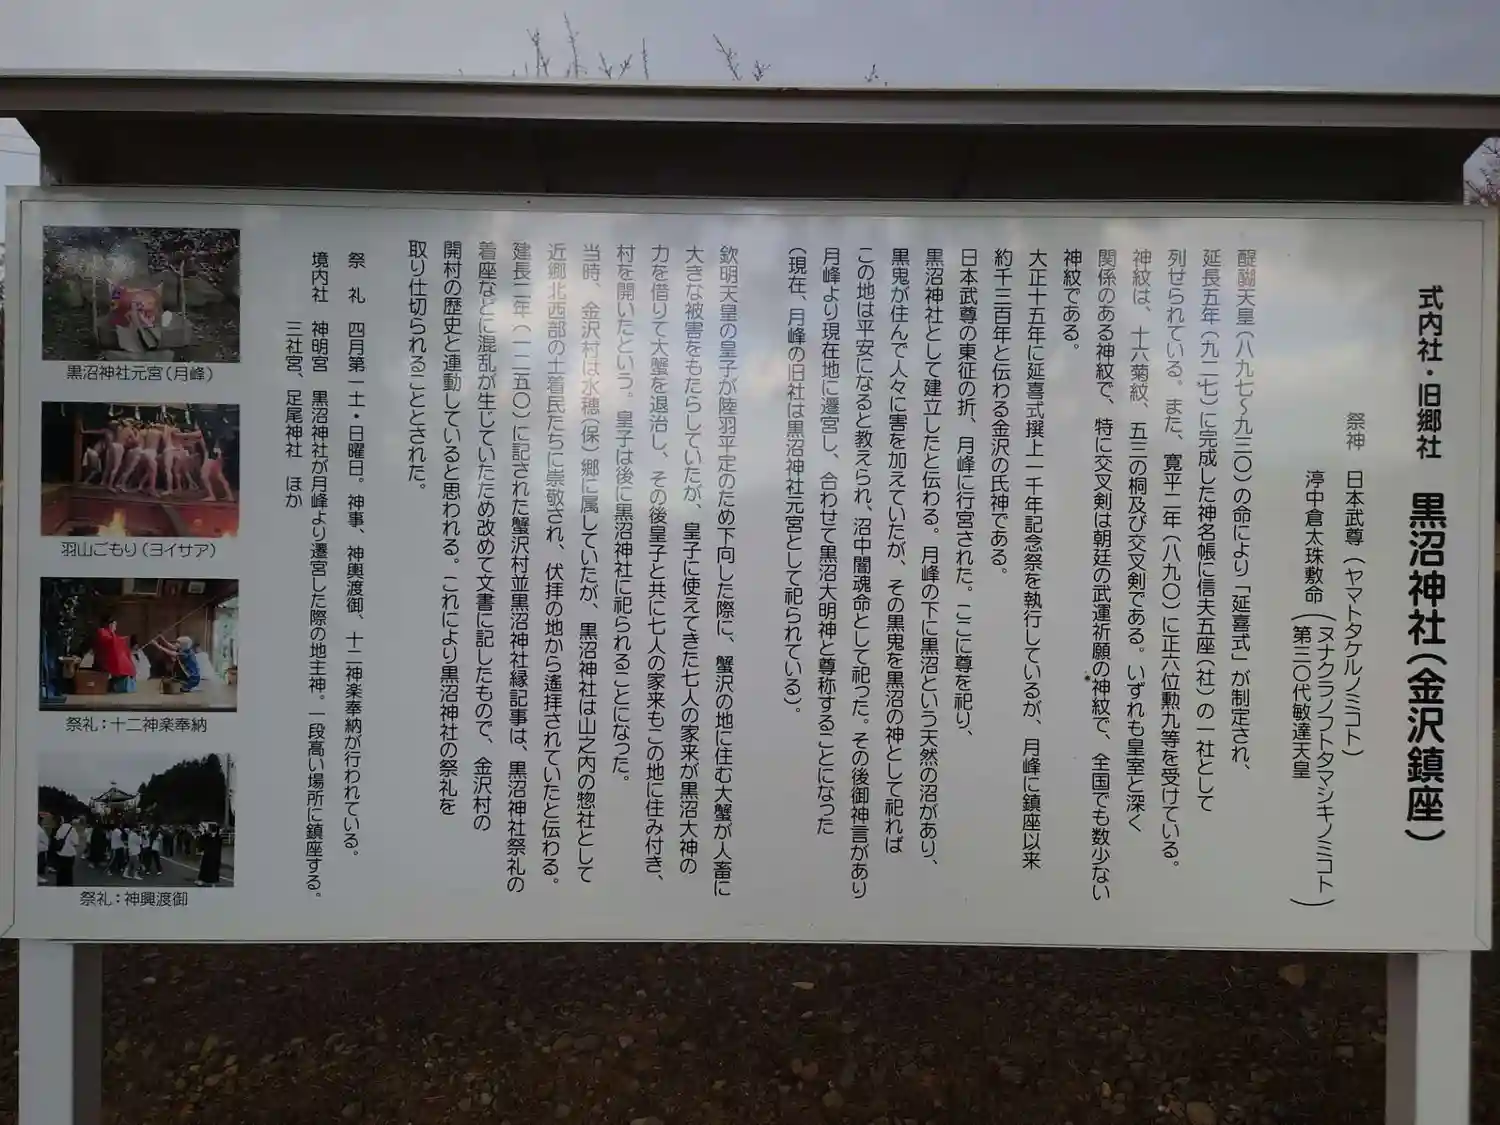 式内社・旧郷社　黒沼神社（金沢鎮座）
祭神　日本武尊（ヤマトタケルノミコト）
渟中倉太珠敷命（ヌナクラノフトタマシキノミコト）
第三〇代敏達天皇
醍醐天皇（八九七〜九三〇）の命により「延喜式」が制定され、
延長五年（九二七）に完成した神名帳に信夫五座（社）の一社として
列せられている。また、寛平二年（八九〇）に正六位勲九等を受けている。
神紋は、十六菊紋、五三の桐及び交叉剣である。いずれも皇室と深く
関係のある神紋で、特に交叉剣は朝廷の武運祈願の神紋で、全国でも数少ない
神紋である。
大正十五年に延喜式撰上一千年記念祭を執行しているが、月峰に鎮座以来
約千三百年と伝わる金沢の氏神である。
日本武尊の東征の折、月峰に行宮された。ここに尊を祀り、
黒沼神社として建立したと伝わる。月峰の下に黒沼という天然の沼があり、
黒鬼が住んで人々に害を加えていたが、その黒鬼を黒沼の神として祀れば
この地は平安になると教えられ、沼中闇魂命として祀った。その後御神言があり
月峰より現在地に遷宮し、合わせて黒沼大明神と尊称することになった
（現在、月峰の旧社は黒沼神社元宮として祀られている）。
欽明天皇の皇子が陸羽平定のため下向した際に、蟹沢の地に住む大蟹が人畜に
大きな被害をもたらしていたが、皇子に使えてきた七人の家来が黒沼大神の
力を借りて大蟹を退治し、その後皇子と共に七人の家来もこの地に住み付き、
村を開いたという。皇子は後に黒沼神社に祀られることになった。
当時、金沢村は水穂（保）郷に属していたが、黒沼神社は山之内の惣社として
近郷北西部の土着民たちに崇敬され、伏拝の地から遙拝されていたと伝わる。
建長二年（一二五〇）に記された蟹沢村並黒沼神社縁記事は、黒沼神社祭礼の
着座などに混乱が生じていたため改めて文書に記したもので、金沢村の
開村の歴史と連動していると思われる。これにより黒沼神社の祭礼を
取り仕切られることとされた。
祭　礼　四月第一土・日曜日。神事、神輿渡御、十二神楽奉納が行われている。
境内社　神明宮　黒沼神社が月峰より遷宮した際の地主神。一段高い場所に鎮座する。
三社宮、足尾神社　ほか
黒沼神社元宮（月峰）
羽山ごもり（ヨイサア）
祭礼：十二神楽奉納
祭礼：神興渡御